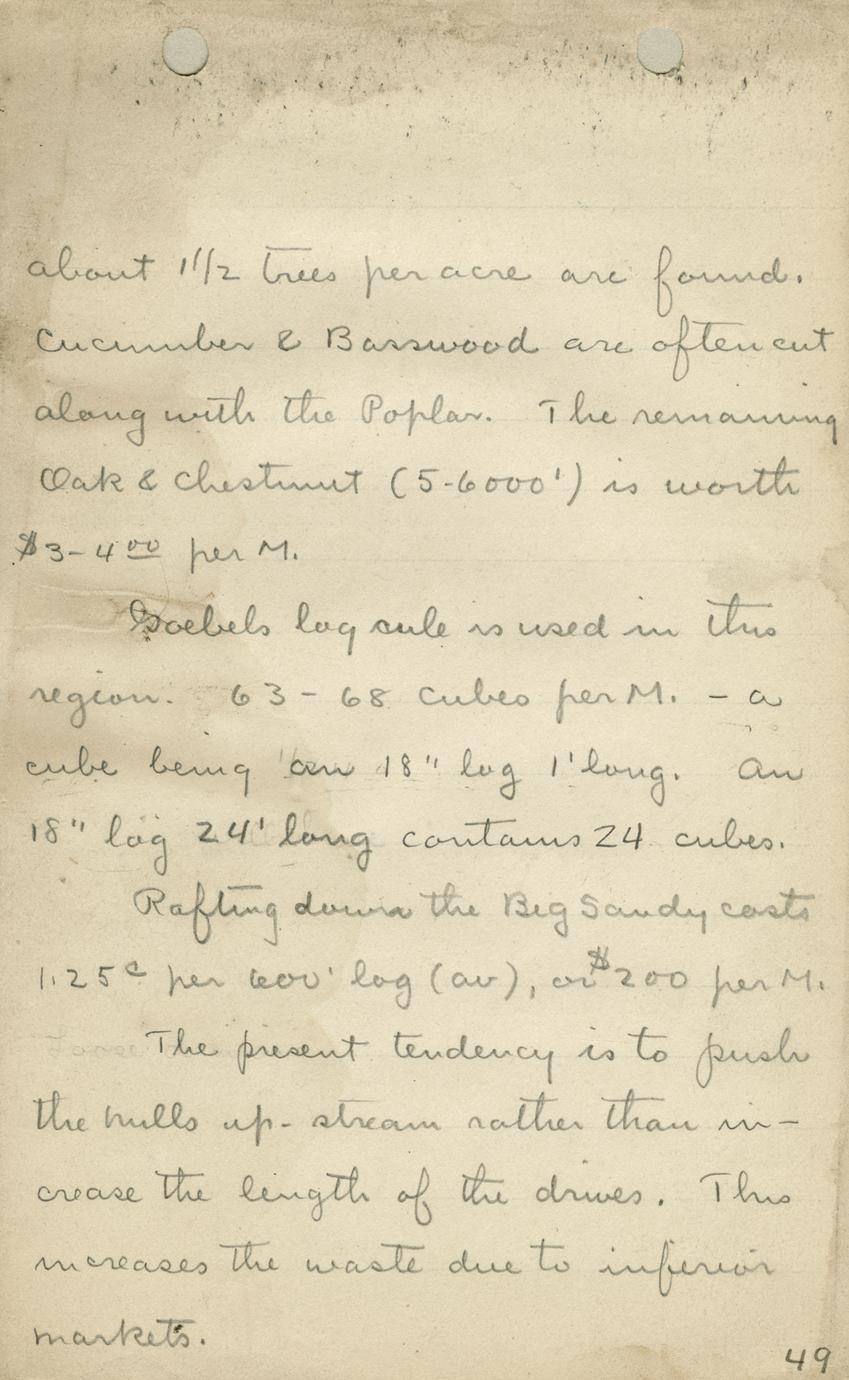 about 1 1/2 trees per acre are found.
Cucumber & Basswood are often cut
along with the Poplar. The remaining
Oak & Chestnut (5-6000') is worth
$3-4 00 per M.
Goebels log rule is used in this
region. 63-68 cubes per M. - a
cube being an 18" log 1' long. An
18" log 24' long contains 24 cubes.
Rafting down the Big Sandy costs
1.25c per 600' log (av), or $200 per M.
The present tendency is to push
the mills up-stream rather than in-
crease the length of the drives. This
increases the waste due to inferior
markets.
49